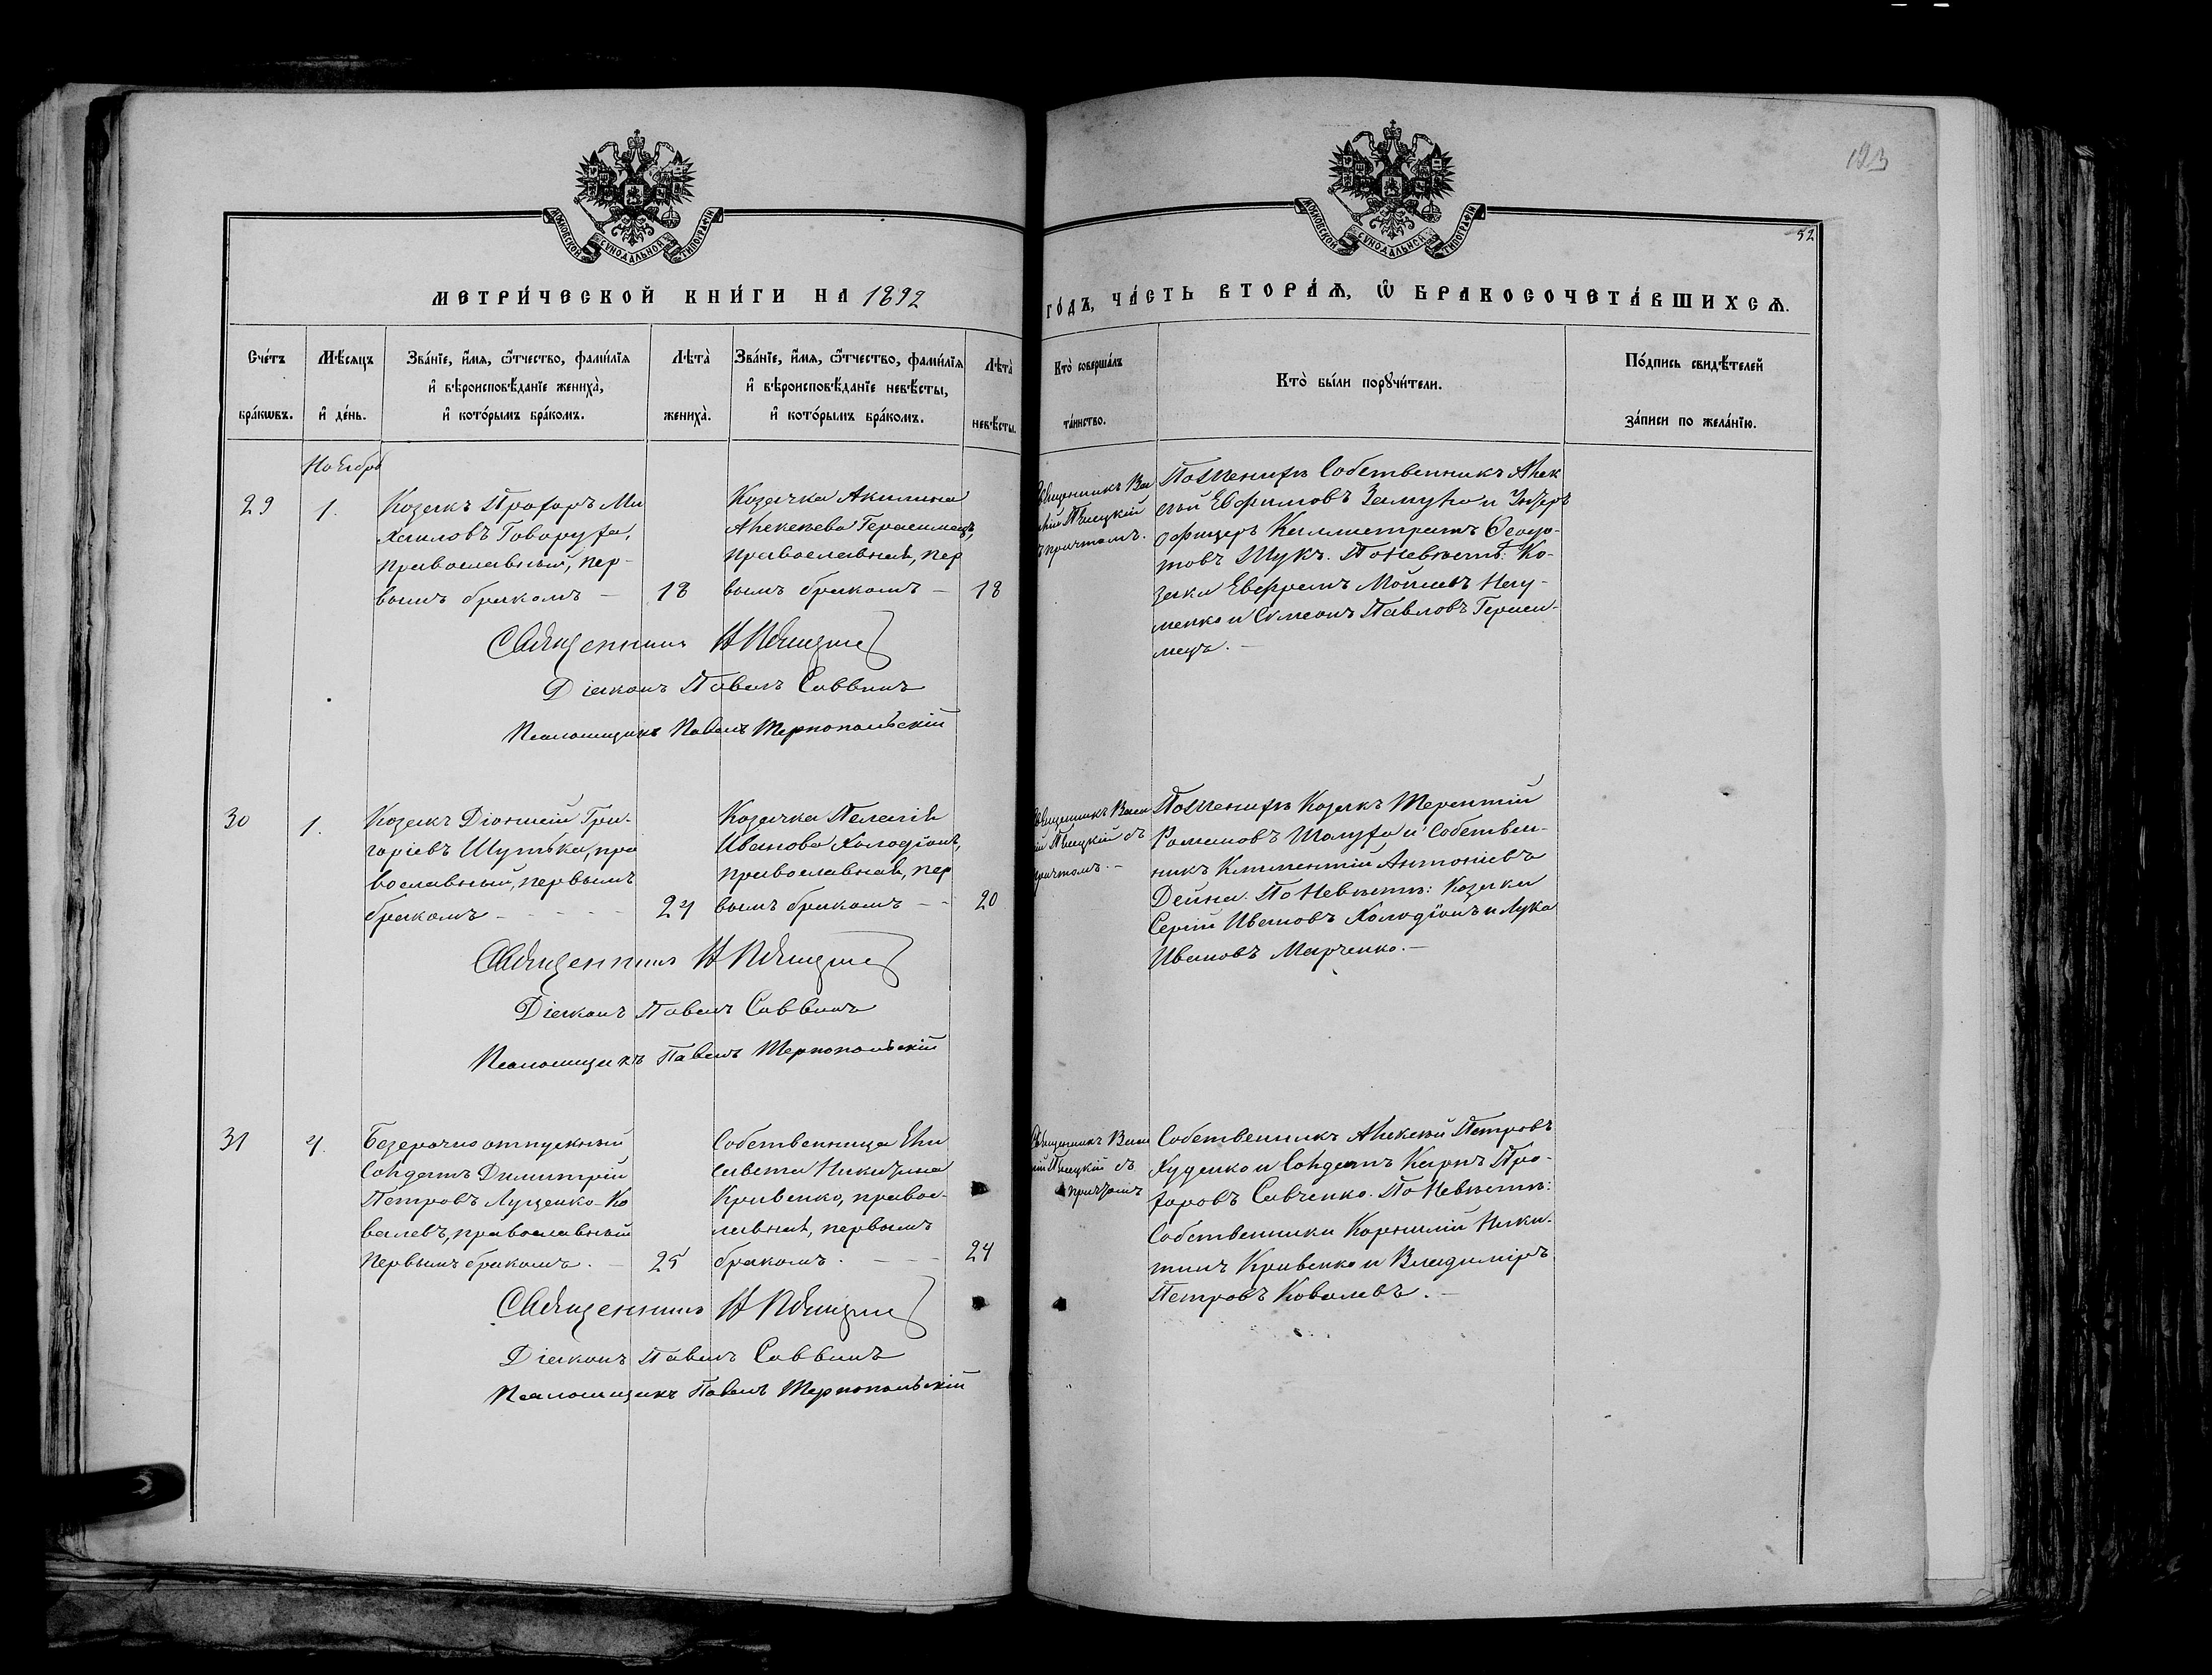 193
52
МОСКОВСКОЙ СѴНОДАЛЬНОЙ ТИПОГРАФІИ
МОСКОВСКОЙ СѴНОДАЛЬНОЙ ТИПОГРАФІИ
МЕТРИ́ЧЕСКОЙ КНИ́ГИ НА 1892
ГО́ДЪ, ЧА́СТЬ ВТОРА́Ѧ, Ѡ҆ БРАКОСОЧЕТА́ВШИХСѦ.
Сче́тъ
бра́кѡвъ.
Мѣ́сяцъ
и҆ де́нь.
Зва́нїе, и҆́мя, ѻ҆́тчество, фами́лїя
и҆ вѣроисповѣ́данїе жениха̀,
и҆ кото́рымъ бра́комъ.
Лѣта̀
жениха̀.
Зва́нїе, и҆́мя, ѻ҆́тчество, фами́лїя
и҆ вѣроисповѣ́данїе невѣ́сты,
и҆ кото́рымъ бра́комъ.
Лѣта̀
невѣ́сты.
Кто̀ соверша́лъ
та́инство.
Кто̀ бы́ли порꙋчи́тели.
По́дпись свидѣ́телей
за́писи по жела́нїю.
Ноябрь
29
1.
Козакъ Прохоръ Ми
хаиловъ Говоруха,
православный, пер-
вымъ бракомъ –
18
Козачка Акилина
Алексѣева Герасимецъ,
православная, пер
вымъ бракомъ –
18
Священникъ
причтомъ.
По женихѣ Собственникъ Алек
сѣй Евфимовъ и Унтеръ
офицеръ Каллистратъ Ѳеодо-
товъ Щукъ. По Невѣстѣ: Ко-
заки Евфремъ Моисеевъ Нау-
менко и Симеонъ Павловъ Гераси-
мецъ. –
Священникъ
Діаконъ Павелъ Саввинъ
Псаломщикъ Павелъ Тернопольскій
30
1.
Козакъ Діонисій Гри-
горіевъ Шутька, пра
вославный, первымъ
бракомъ – – – –
24
Козачка Пелагія
Иванова Холодіонъ,
православная, пер
вымъ бракомъ – –
20
Священникъ Васи
съ
причтомъ. –
По женихѣ Козакъ Терентій
Романовъ Шолуха и Собствен-
никъ Климентій Антоніевъ
Дейна. По Невѣстѣ: Козаки
Сергій Ивановъ Холодіонъ и Лука
Ивановъ Марченко. –
Священникъ
Діаконъ Павелъ Саввинъ
Псаломщикъ Павелъ Тернопольскій
31
4.
Безсрочно отпускный
Солдатъ Димитрій
Петровъ Луценко-Ко
валевъ, православный
первымъ бракомъ. –
25
Собственница Ели
савета Никитина
Кривенко, правос-
лавная, первымъ
бракомъ. – –
24
Священникъ Васи
съ
причтомъ
Собственникъ Алексѣй Петровъ
Худенко и Солдатъ Карпъ Про-
хоровъ Савченко. По Невѣстѣ:
Собственники Корнилій Ники-
тинъ Кривенко и Владиміръ
Петровъ Ковалевъ. –
Священникъ
Діаконъ Павелъ Саввинъ
Псаломщикъ Павелъ Тернопольскій